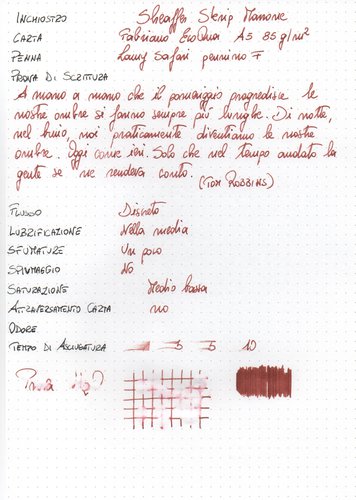 INCHIOSTRO Sheaffer Skrip Marrone
CARTA Fabriano EcoQua A5 85 g/m²
PENNA Lamy Safari pennino F
PROVA DI SCRITTURA
A mano a mano che il pomeriggio progredisce le
nostre ombre si fanno sempre più lunghe. Di notte,
nel buio, noi praticamente diventiamo le nostre
ombre. Oggi come ieri. Solo che nel tempo andato la
gente se ne rendeva conto.
(TOM ROBBINS)
FLUSSO Discreto
LUBRIFICAZIONE Nella media
SFUMATURE Un poco
SPIUMAGGIO NO
SATURAZIONE Medio bassa
ATTRAVERSAMENTO CARTA no
ODORE
TEMPO DI ASCIUGATURA 5 5 10
Prova H2O